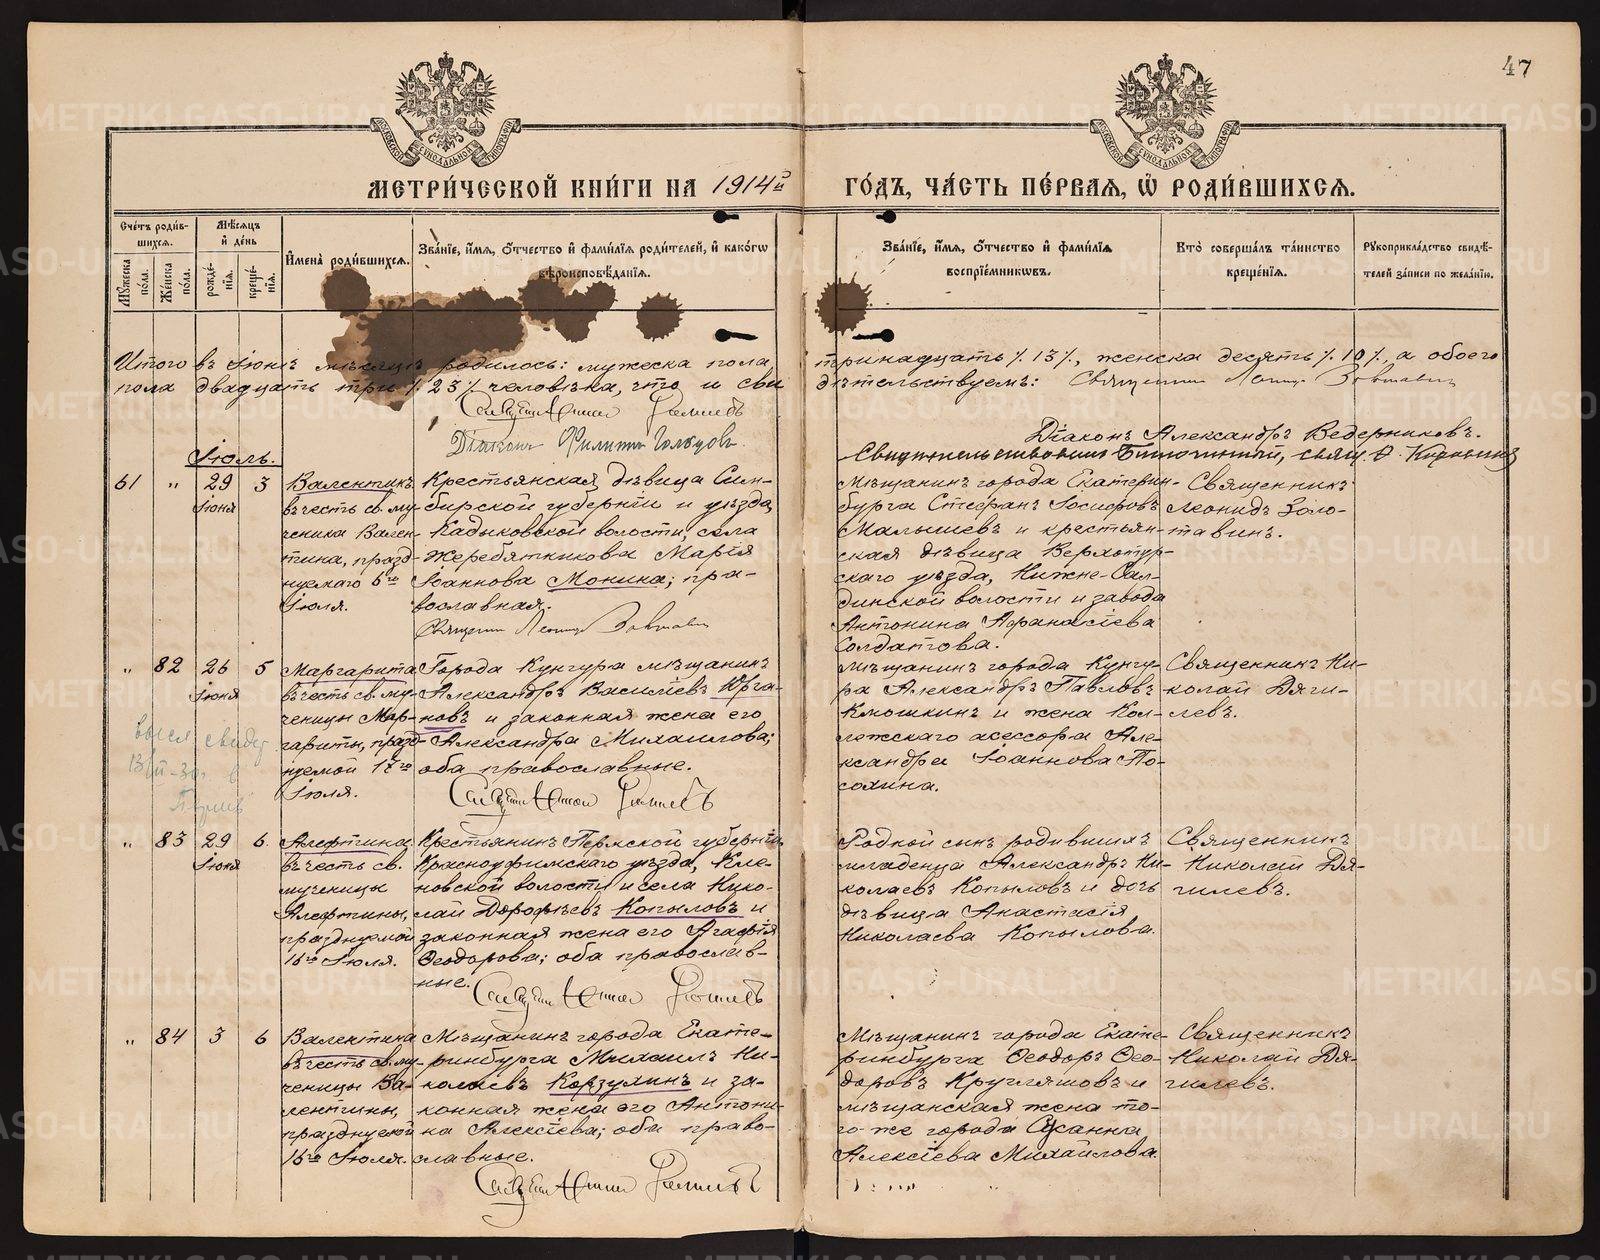 47
МЕТРИ́ЧЕСКОЙ КНИ́ГИ НА 1914й ГО́ДЪ, ЧА́СТЬ ПЕ́РВАЯ, Ѡ҆ РОДИ́ВШИХСѦ.
Сче́тъ роди́в-
шихсѧ.
Мꙋ́жеска по́ла.
Же́нска по́ла.
Мѣ́сѧцъ
и҆ де́нь
рожде́-
нїѧ.
креще́-
нїѧ.
И҆мена̀ роди́вшихсѧ.
Зва́нїе, и҆́мѧ, ѻ҆́тчество и҆ фами́лїѧ роди́телей, и҆ како́гѡ
вѣроисповѣ́данїѧ.
Зва́нїе, и҆́мѧ, ѻ҆́тчество и҆ фами́лїѧ
воспрїе́мникѡвъ.
Кто̀ соверша́лъ та́инство
креще́нїѧ.
Рꙋкоприкла́дство свидѣ́-
телей за́писи по жела́нїю.
Итого въ Іюнѣ мѣсяцѣ родилось: мужеска пола тринадцать /13/, женска десять /10/, а обоего
пола двадцать три /23/ человѣка, что и сви дѣтельствуемъ: Священникъ
Діаконъ Филиппъ Гольцовъ.
Діаконъ Александръ Ведерниковъ.
Іюль.
61 " 29 3
Іюня
Валентинъ
въ честь св. му-
ченика Вален-
тина, празд-
нуемаго 6го
Іюля.
Крестьянская дѣвица Сим-
бирской губерніи и уѣзда,
Кадыковской волости, села
Жеребятникова Марія
Іоаннова Монина; пра-
вославная.
Мѣщанинъ города Екатерин-
бурга Стефанъ Іосифовъ
Малышевъ и крестьян-
ская дѣвица Верхотур-
скаго уѣзда, Нижне-Сал-
динской волости и завода
Антонина Афанасіева
Солдатова.
Священникъ
Леонидъ Золо-
тавинъ.
" 82 26 5
Іюня
Маргарита
въ честь св. му-
ченицы Мар-
гариты, празд-
нуемой 17го
Іюля.
Города Кунгура мѣщанинъ
Александръ Василіевъ Юрга-
новъ и законная жена его
Александра Михаилова;
оба православные.
Мѣщанинъ города Кунгу-
ра Александръ Павловъ
Клюшкинъ и жена Кол-
лежскаго асессора Але-
ксандра Іоаннова По-
сохина.
Священникъ Ни-
колай Дяги-
левъ.
" 83 29 6
Іюня
Алефтина
въ честь св.
мученицы
Алефтины,
празднуемой
16го Іюля.
Крестьянинъ Пермской губерніи,
Красноуфимскаго уѣзда, Кле-
новской волости и села Нико-
лай Дорофѣевъ Копыловъ и
законная жена его Агафія
Ѳеодорова; оба православ-
ные.
Родной сынъ родившихъ
младенца Александръ Ни-
колаевъ Копыловъ и дочь
дѣвица Анастасія
Николаева Копылова.
Священникъ
Николай Дя-
гилевъ.
" 84 3 6
Валентина
въ честь св. му-
ченицы Ва-
лентины,
празднуемой
16го Іюля.
Мѣщанинъ города Екате-
ринбурга Михаилъ Ни-
колаевъ Корзухинъ и за-
конная жена его Антони-
на Алексіева; оба право-
славные.
Мѣщанинъ города Екате-
ринбурга Ѳеодоръ Ѳео-
доровъ Кругляшовъ и
мѣщанская жена то-
го-же города Сусанна
Алексіева Михаилова.
Священникъ
Николай Дя-
гилевъ.
METRIKI.GASO-URAL.RU